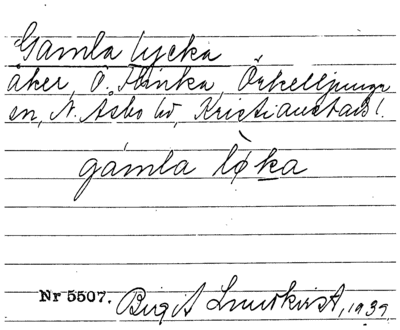 Gamla lycka
åker, Ö. Flinka, Örkelljunga
sn, N. Åsbo hd, Kristianstads l.
gámla lø̀ka
Nr 5507. Birgit Lundkvist, 1939